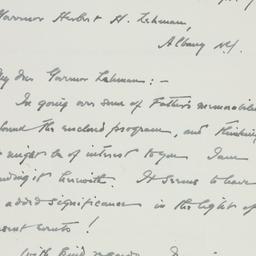 Governor Herbert H. Lehman,
Albany N.Y.
My dear Governor Lehman: —
In going over some of Father's memorabilia
found the enclosed program, and thinking
might be of interest to you I am
sending it herewith. It seems to have
added significance in the light of
present events!
With kind regards